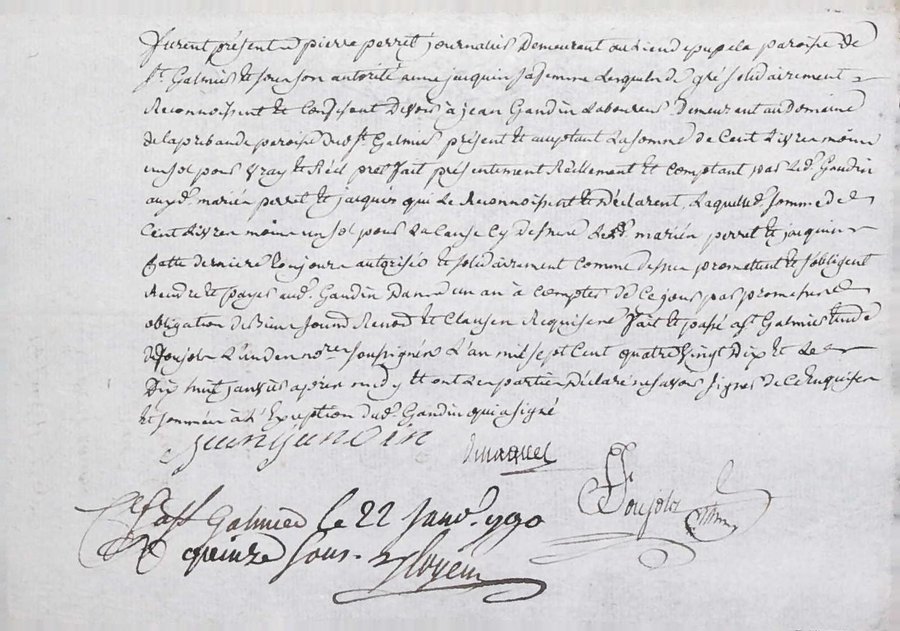 furent présent pierre perret journalier demeurant au lieu de pupela paroisse de
St. Galmier et sous son autorité anne jacquin sa femme lesquels de gré solidairement
Reconnoissent et Confessent Devoir à jean Gandin Laboureur Demeurant au domaine
de la prebande paroisse dud. St. Galmier présent et acceptant La somme de Cent Livres moins
un sol pour vray et Réél pret fait présentement Réellement et comptant par led. Gandin
auxd. mariés perret et jacquin qui Le Reconnoissent et Déclarent, Laquelle d. somme de
Cent Livres moins un sol pour La Cause Cy dessus Lesd. mariés perret et jacquin
Cette derniere toujours autorisée et solidairement comme dessus promettent et s'obligent
Rendre et payer aud. Gandin Dans un an à Compter de Ce jour par promesse
obligation de Biens soumd. Renond. et Clauses Requises fait et passé a St. Galmier étude
de Ponjolz L'un des nores soussignés L'an mil sept Cent quatre vingt Dix et Le
Dix huit janvier après midy et ont Les parties Déclaré ne savoir signer de Ce Enquises
et sommées à L'Exception dud. Gandin qui a signé
jean gandin
Ponjolz
Cé a St. Galmier le 22 janv. 1790
R quinze sous